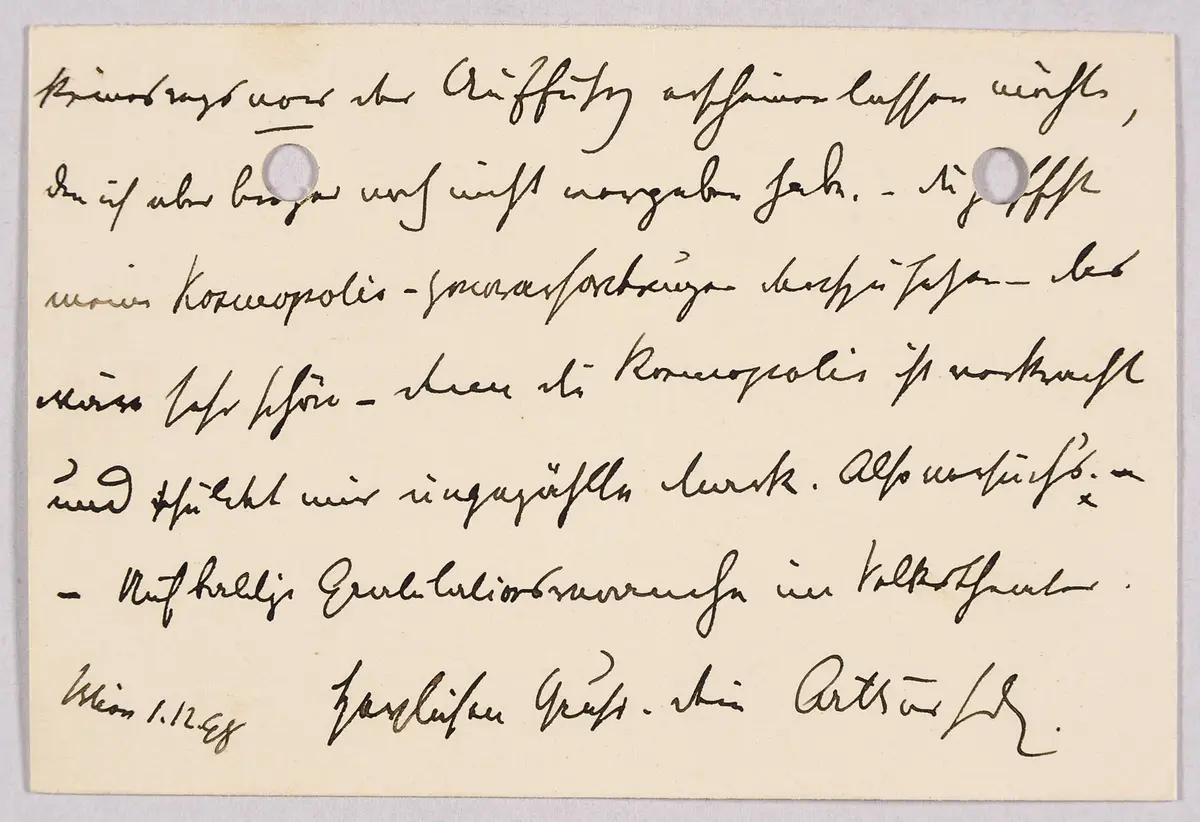 keineswegs vor der Aufführg erscheinen lassen möchte,
den ich aber bisher noch nicht vergeben habe. – Du hoffst
meine Kosmopolis- durchzusetzen – das
wäre sehr schön – denn die Kosmopolis ist verkracht
und schuldet mir ungezählte Mark. Also versuch's. –
– Auf baldige Gratulationsmanche im Volkstheater.
Wien 1.12.98 Herzlichen Gruß. Dein ArthSch